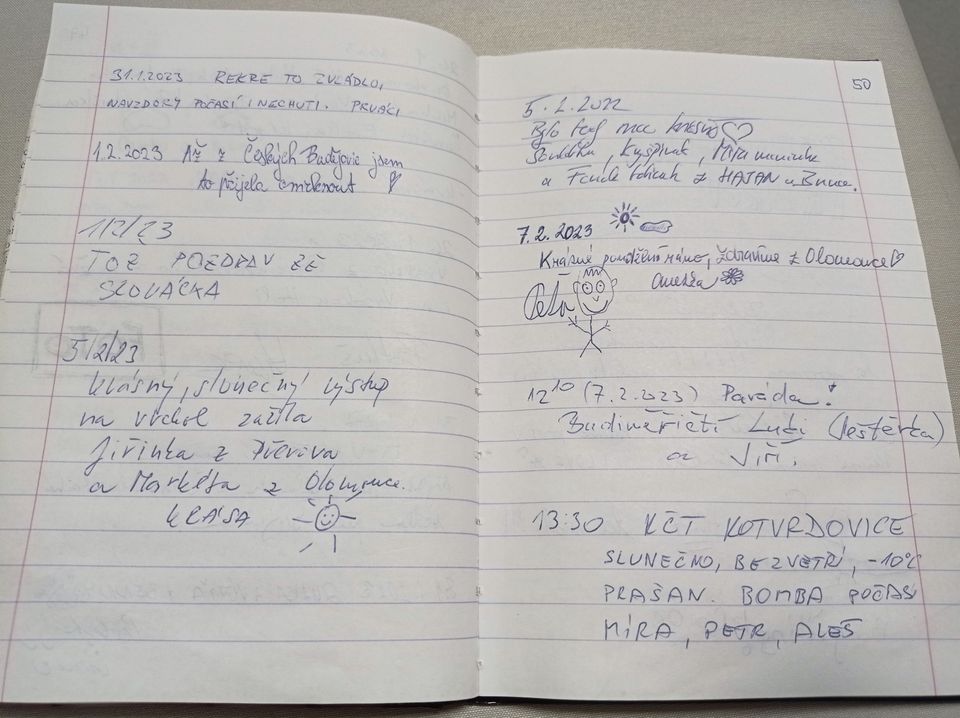 31.1.2023 REKRE TO ZVLÁDLO,
NAVZDORY POČASÍ I NECHUTI. PRVÁCI
1.2.2023 Až z Českých Budějovic jsem
to přijela omrknout
1/2/23
TOŽ POZDRAV ZE
SLOVÁCKA
5/2/23
Krásný, slunečný výstup
na vrchol zažila
Jiřinka z Přerova
a Markéta z Olomouce.
KRÁSA
50
5.2.2022
Bylo teď moc krásně
a z HAJAN u Brna.
7.2.2023
Krásné pondělní ráno, zdravíme z Olomouce
Peťa
Anežka
12¹⁰ (7.2.2023) Paráda!
Budiměřičtí Luki (Ještěrka)
a Jiří.
13:30 KČT KOTVRDOVICE
SLUNEČNO, BEZVĚTŘÍ, -10°C
PRAŠAN. BOMBA POČASÍ
MÍRA, PETR, ALEŠ